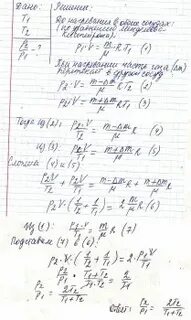 Дано: Решение:
T₁ До нагревания в обоих сосудах
T₂ (по уравнению Менделеева-
Клапейрона)
P₂/P₁ - ? P₁·V = m/μ·RT₁ (1)
При нагревании часть газа (Δm)
в другой сосуд
P₂V = (m-Δm)/μ RT₂ (2)
P₂V = (m+Δm)/μ RT₁ (3)
(2) P₂V/T₂ = (m-Δm)/μ R (4)
Из (3): P₂V/T₁ = (m+Δm)/μ R (5)
Сложим (4) и (5)
P₂V/T₂ + P₂V/T₁ = (m-Δm)/μ R + (m+Δm)/μ R
P₂·V·(1/T₂ + 1/T₁) = 2 m/μ R (6)
Из (1) P₁·V/T₁ = m/μ R (7)
Подставим (7) в (6):
P₂·V·(1/T₂ + 1/T₁) = 2·P₁V/T₁
P₂/P₁ · (T₁+T₂)/(T₁·T₂) = 2/T₁
P₂/P₁ = 2T₂/(T₁+T₂) Ответ: P₂/P₁ = 2T₂/(T₁+T₂)